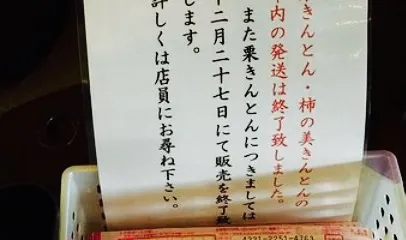 きんとん・柿の美きんとんの
内の発送は終了致しました。
また栗きんとんにつきましては
十二月二十七日にて販売を終了致
します。
詳しくは店員にお尋ね下さい。
4221-2251-4763